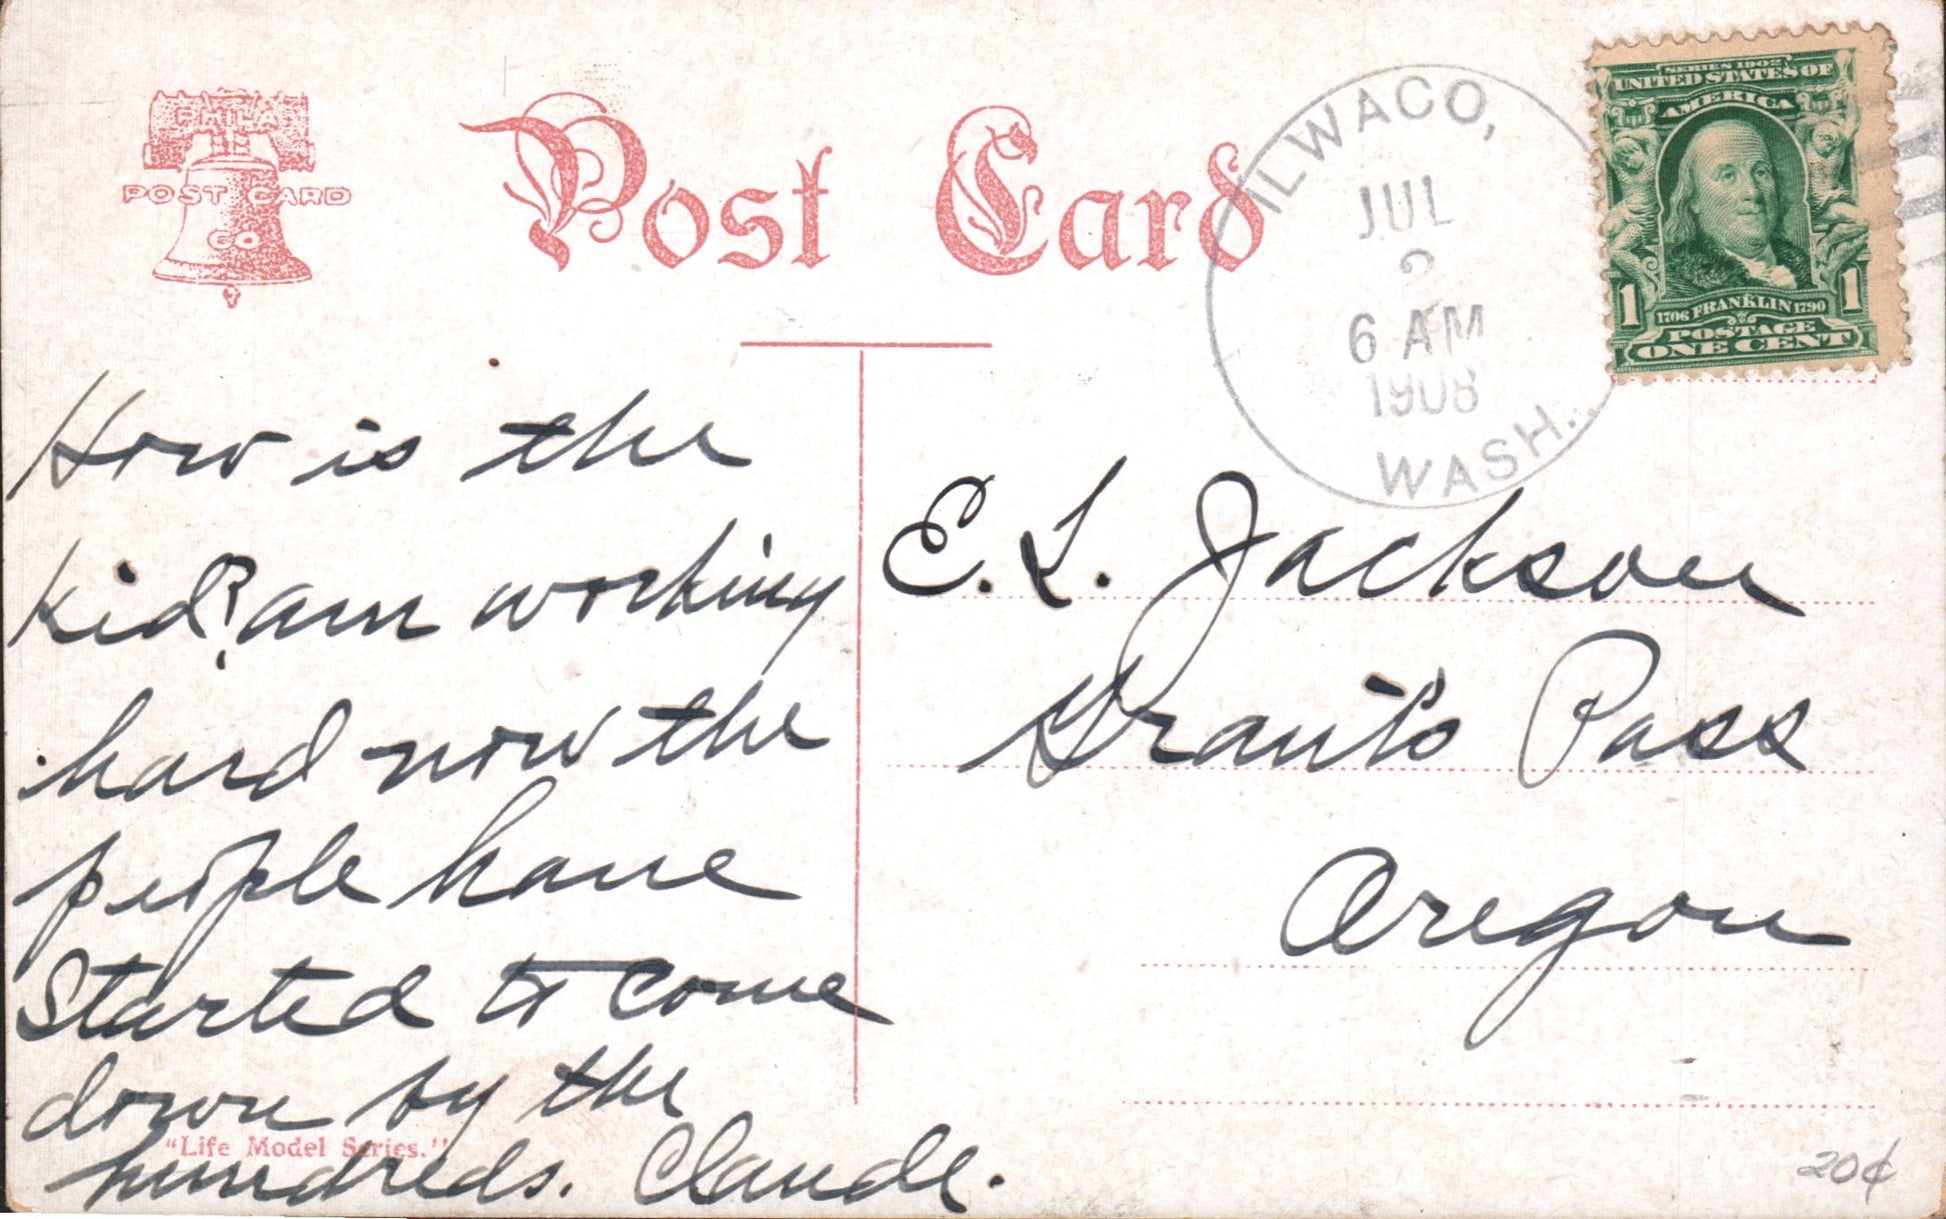 PHILA
POST CARD
CO
Post Card
ILWACO,
JUL
2
6 AM
1908
WASH.
SERIES 1902
UNITED STATES OF
AMERICA
1 1
1706 FRANKLIN 1790
POSTAGE
ONE CENT
How is the
Kid? am working
hard now the
people have
Started to come
down by the
hundreds. Claude.
"Life Model Series."
E. L. Jackson
Grant's Pass
Oregon
20¢